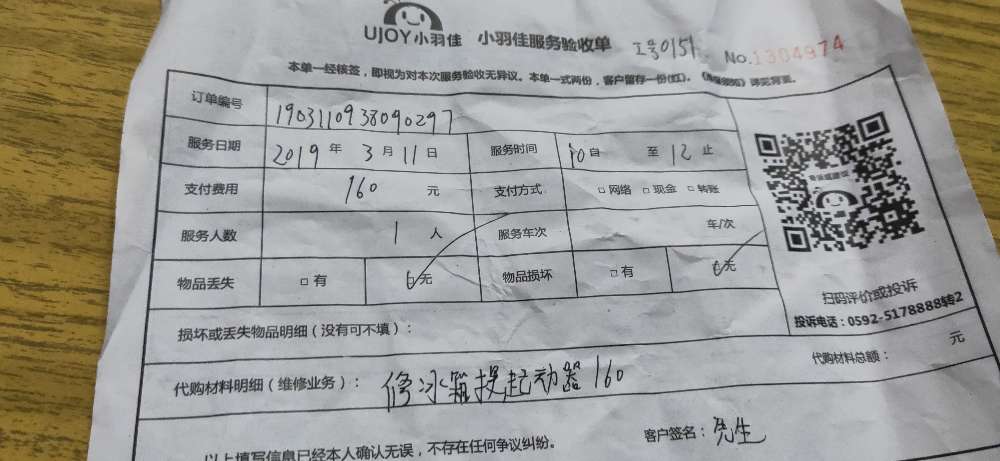 UJOY小羽佳 小羽佳服务验收单 工号0151 No.1304974
本单一经核签，即视为对本次服务验收无异议。本单一式两份，客户留存一份(红)。
订单编号 1903110938090297
服务日期 2019 年 3 月 11 日 服务时间 10 自 至 12 止
支付费用 160 元 支付方式 □ 网络 □ 现金 □ 转账
服务人数 1 人 服务车次 车/次
物品丢失 □ 有 无 物品损坏 □ 有 无
扫码评价或投诉
投诉电话：0592-5178888转2
损坏或丢失物品明细（没有可不填）：
代购材料明细（维修业务）： 修冰箱换起动器160 代购材料总额： 元
以上填写信息已经本人确认无误，不存在任何争议纠纷。 客户签名： 先生